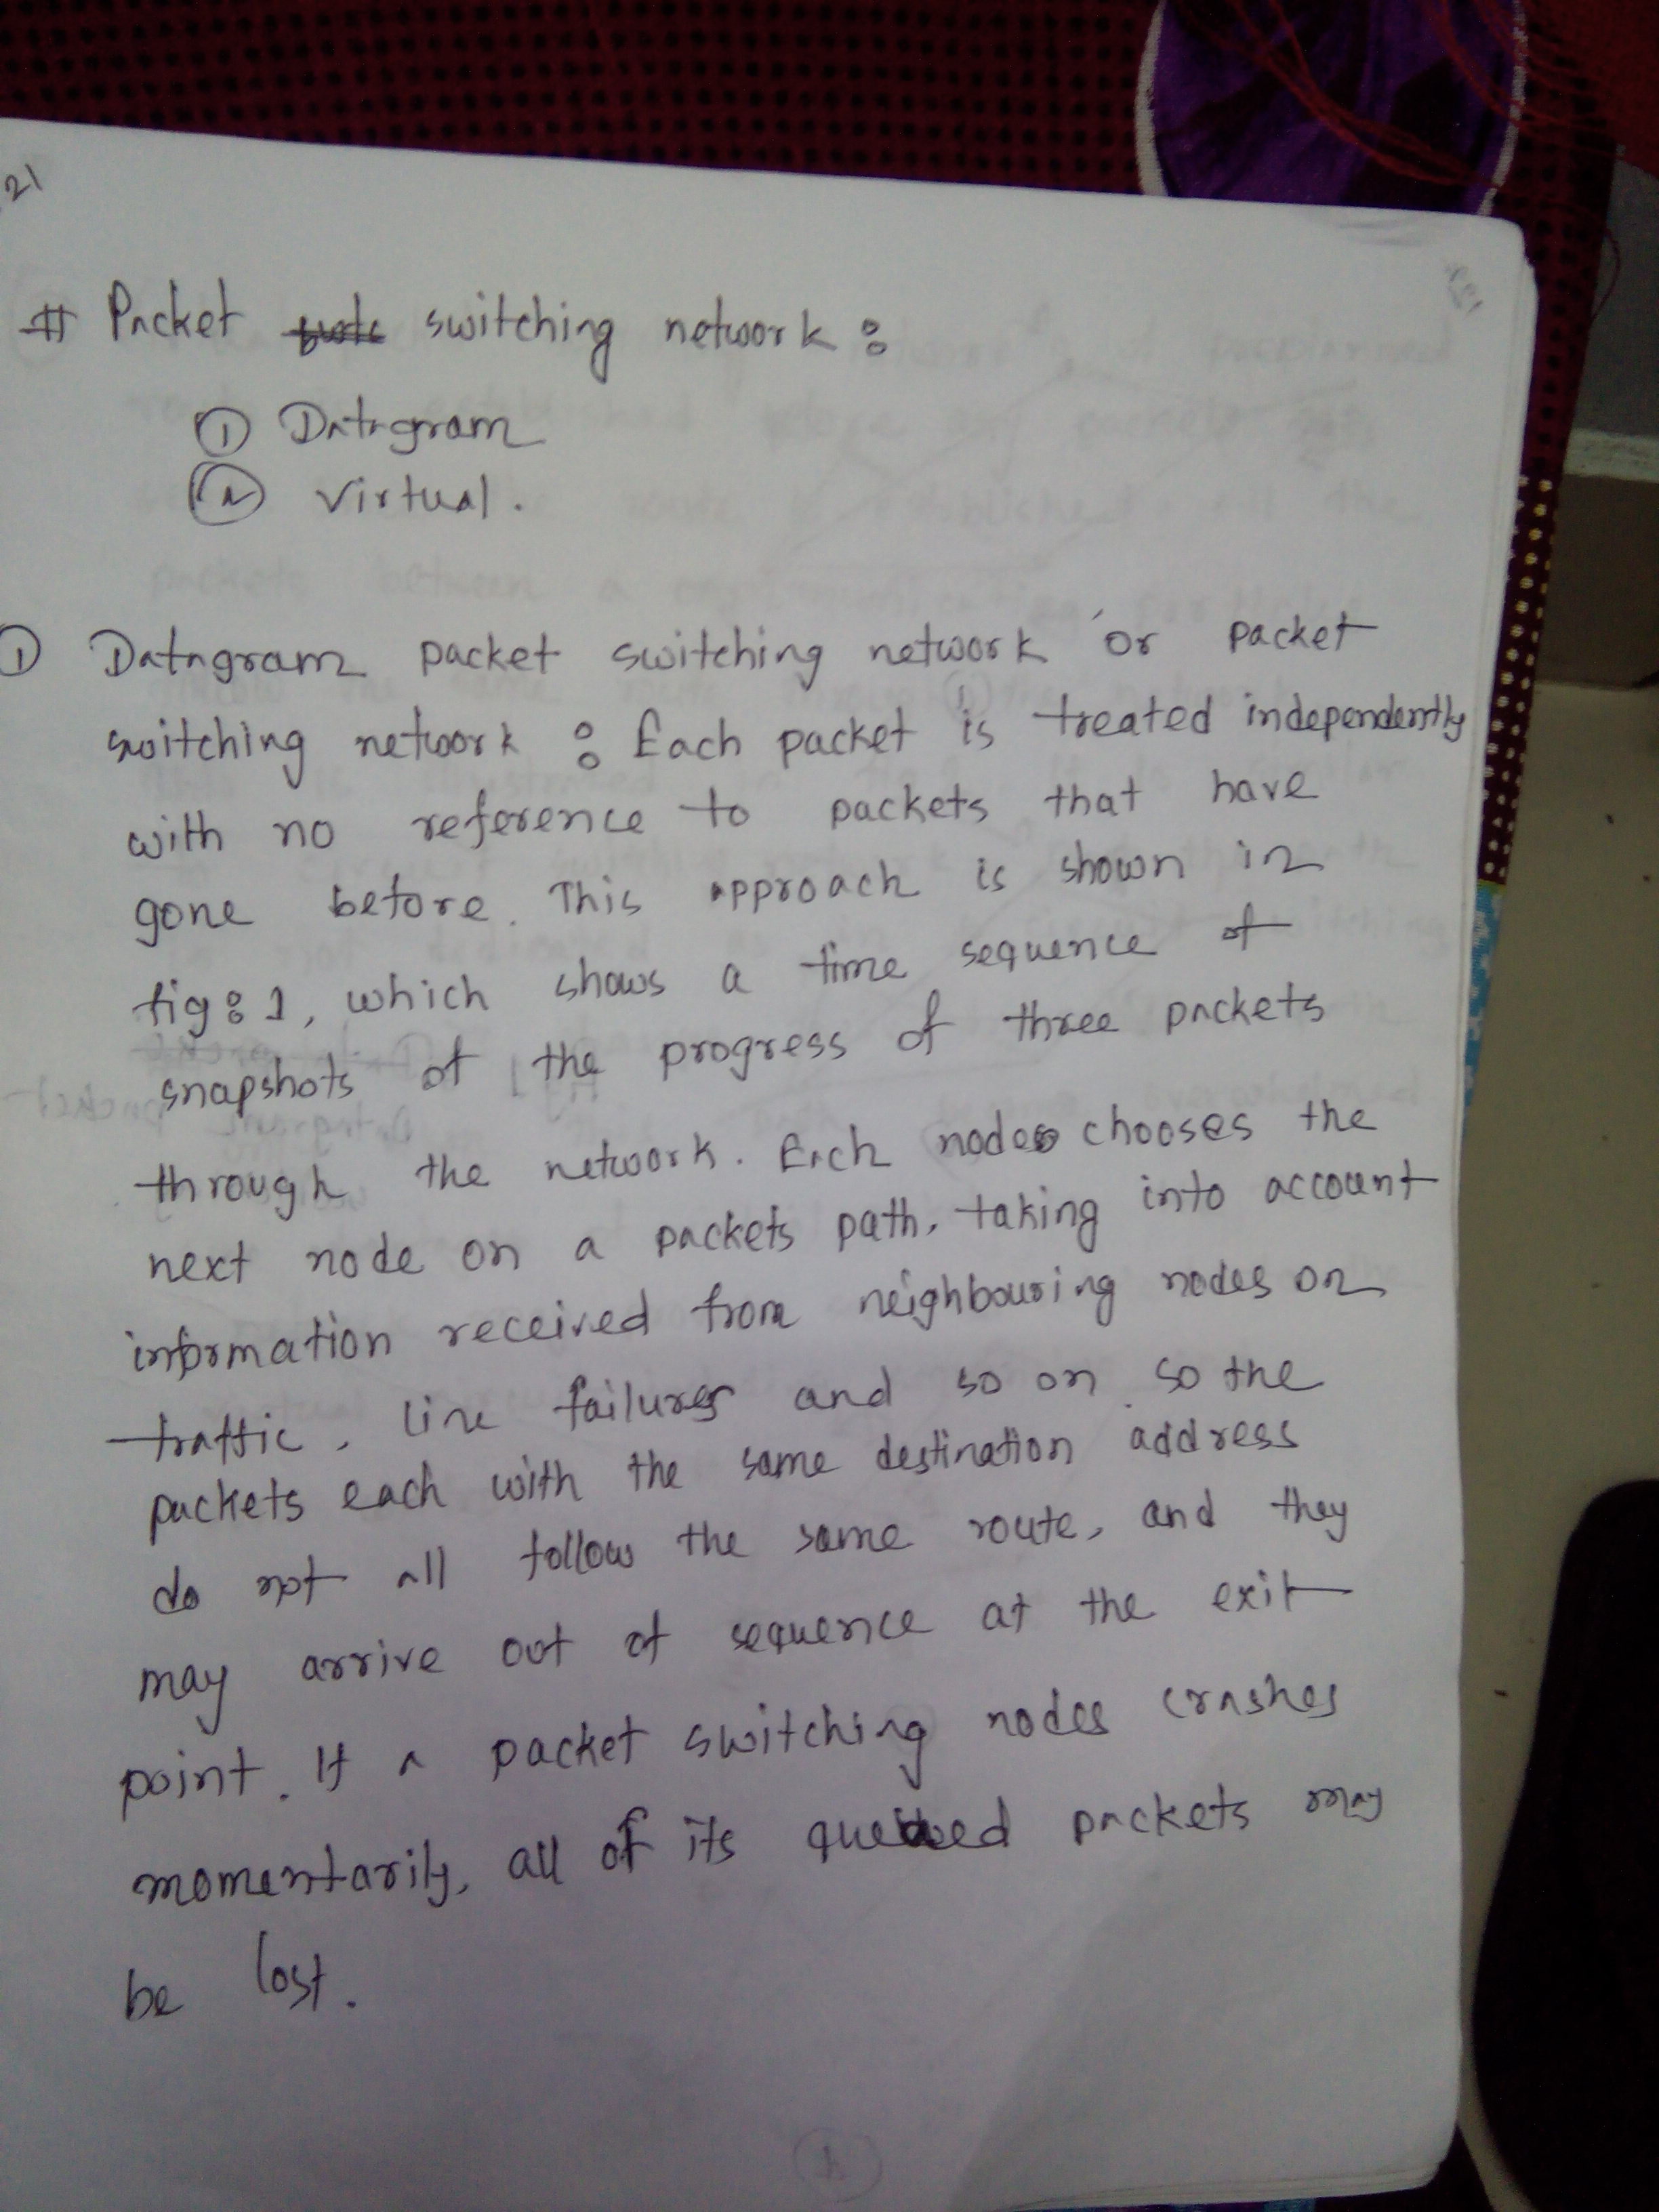 21
# Packet switching network :
① Datagram
② Virtual.
① Datagram packet switching network or packet
switching network : Each packet is treated independently
with no reference to packets that have
gone before. This approach is shown in
fig: 1, which shows a time sequence of
snapshots of the progress of three packets
through the network. Each nodes chooses the
next node on a packets path, taking into account
information received from neighbouring nodes on
traffic, line failures and so on. So the
packets each with the same destination address
do not all follow the same route, and they
may arrive out of sequence at the exit
point. If a packet switching nodes crashes
momentarily, all of its queued packets may
be lost.